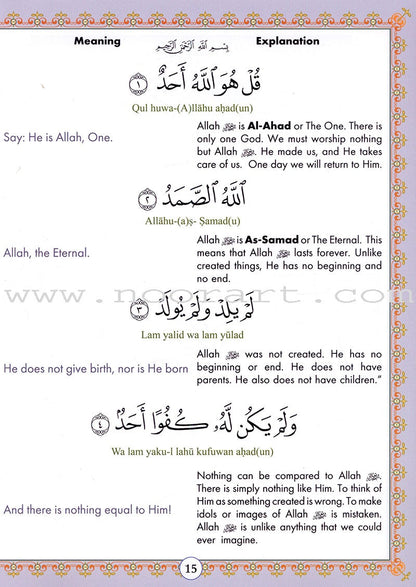 Meaning
بِسْمِ اللَّهِ الرَّحْمَٰنِ الرَّحِيمِ
Explanation
قُلْ هُوَ ٱللَّهُ أَحَدٌ ١
Qul huwa-(A)llāhu aḥad(un)
Say: He is Allah, One.
Allah ﷻ is Al-Ahad or The One. There is
only one God. We must worship nothing
but Allah ﷻ. He made us, and He takes
care of us. One day we will return to Him.
ٱللَّهُ ٱلصَّمَدُ ٢
Allāhu-(a)ṣ- Ṣamad(u)
Allah, the Eternal.
Allah ﷻ is As-Samad or The Eternal. This
means that Allah ﷻ lasts forever. Unlike
created things, He has no beginning and
no end.
www.noorart.com
لَمْ يَلِدْ وَلَمْ يُولَدْ ٣
Lam yalid wa lam yūlad
He does not give birth, nor is He born
Allah ﷻ was not created. He has no
beginning or end. He does not have
parents. He also does not have children.”
وَلَمْ يَكُن لَّهُۥ كُفُوًا أَحَدٌۢ ٤
Wa lam yaku-l lahū kufuwan aḥad(un)
And there is nothing equal to Him!
Nothing can be compared to Allah ﷻ.
There is simply nothing like Him. To think of
Him as something created is wrong. To make
idols or images of Allah ﷻ is mistaken.
Allah ﷻ is unlike anything that we could
ever imagine.
15